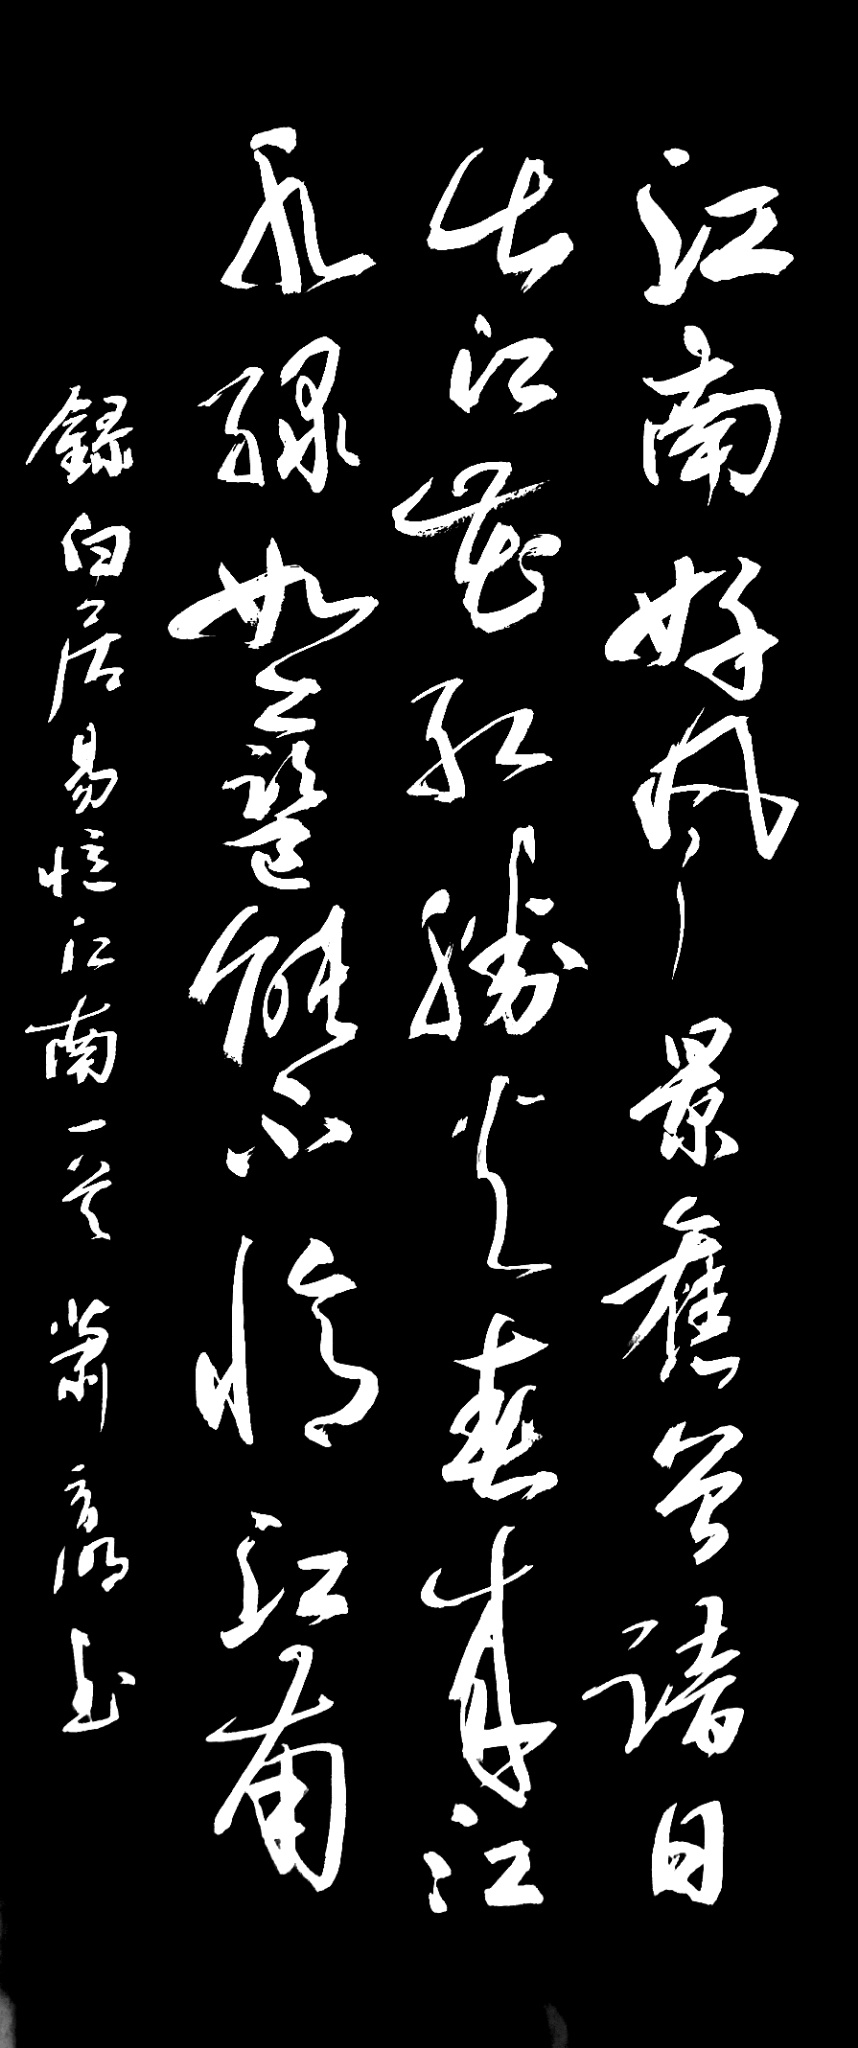 江南好風景舊曾諳日
出江花紅勝火春來江
水綠如藍能不憶江南
錄白居易憶江南一首 蕭 書